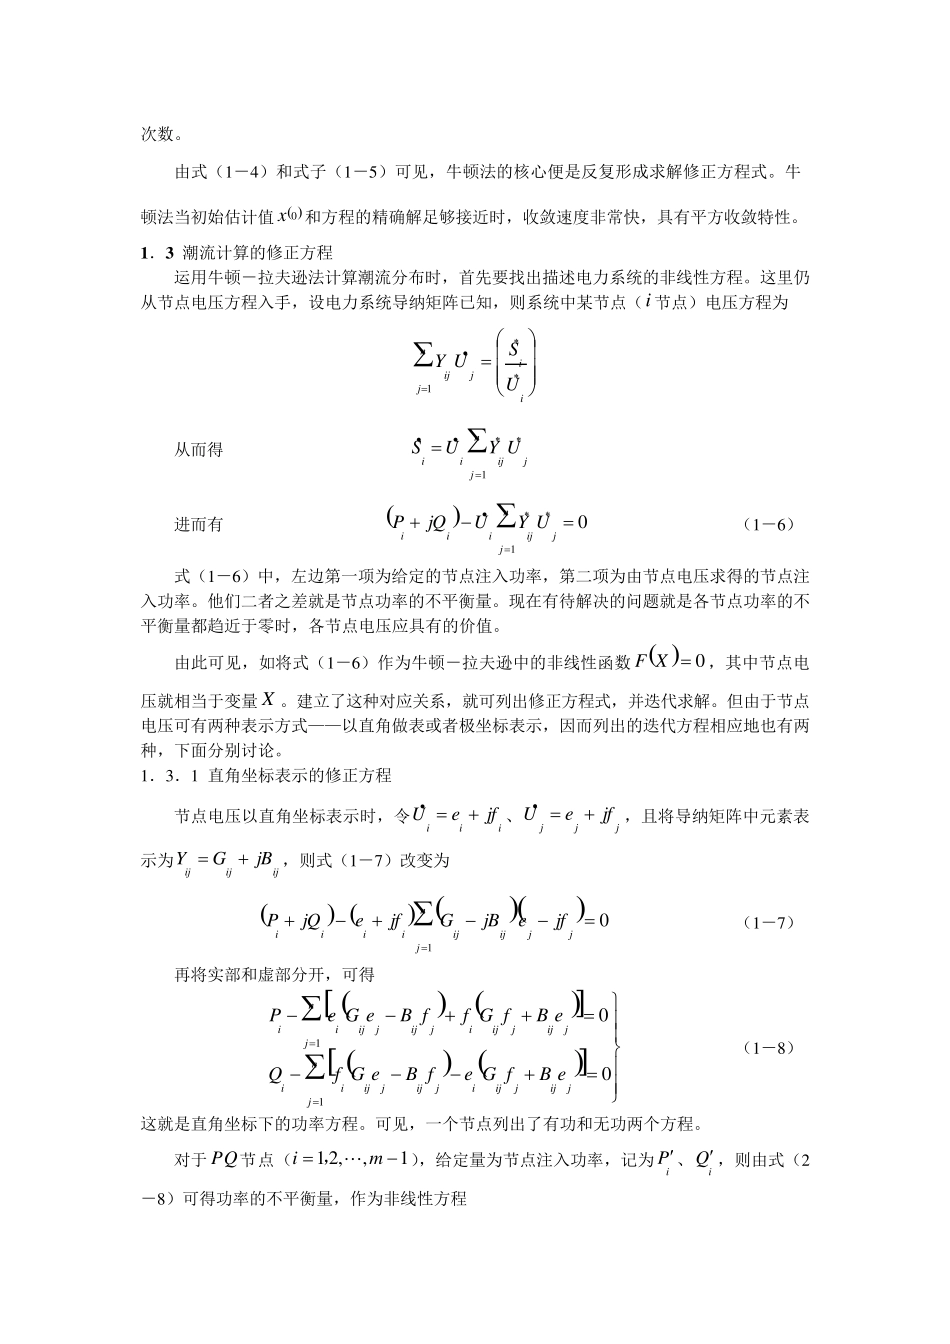 次数。
由式（1－4）和式子（1－5）可见，牛顿法的核心便是反复形成求解修正方程式。牛
顿法当初始估计值 x(0) 和方程的精确解足够接近时，收敛速度非常快，具有平方收敛特性。
1．3 潮流计算的修正方程
运用牛顿－拉夫逊法计算潮流分布时，首先要找出描述电力系统的非线性方程。这里仍
从节点电压方程入手，设电力系统导纳矩阵已知，则系统中某节点（ i 节点）电压方程为
∑_{j=1} Y_{ij} U̇_j = (S*_i / U*_i)
从而得 Ṡ_i = U̇_i ∑_{j=1} Y*_{ij} U*_j
进而有 (P_i + jQ_i) − U̇_i ∑_{j=1} Y*_{ij} U*_j = 0 （1－6）
式（1－6）中，左边第一项为给定的节点注入功率，第二项为由节点电压求得的节点注
入功率。他们二者之差就是节点功率的不平衡量。现在有待解决的问题就是各节点功率的不
平衡量都趋近于零时，各节点电压应具有的价值。
由此可见，如将式（1－6）作为牛顿－拉夫逊中的非线性函数 F(X) = 0 ，其中节点电
压就相当于变量 X 。建立了这种对应关系，就可列出修正方程式，并迭代求解。但由于节点
电压可有两种表示方式——以直角做表或者极坐标表示，因而列出的迭代方程相应地也有两
种，下面分别讨论。
1．3．1 直角坐标表示的修正方程
节点电压以直角坐标表示时，令 U̇_i = e_i + jf_i 、U̇_j = e_j + jf_j ，且将导纳矩阵中元素表
示为 Y_{ij} = G_{ij} + jB_{ij} ，则式（1－7）改变为
(P_i + jQ_i) − (e_i + jf_i) ∑_{j=1} (G_{ij} − jB_{ij})(e_j − jf_j) = 0 （1－7）
再将实部和虚部分开，可得
P_i − ∑_{j=1} [e_i (G_{ij} e_j − B_{ij} f_j) + f_i (G_{ij} f_j + B_{ij} e_j)] = 0
Q_i − ∑_{j=1} [f_i (G_{ij} e_j − B_{ij} f_j) − e_i (G_{ij} f_j + B_{ij} e_j)] = 0 （1－8）
这就是直角坐标下的功率方程。可见，一个节点列出了有功和无功两个方程。
对于 PQ 节点（ i = 1,2,⋯,m − 1 ），给定量为节点注入功率，记为 P′_i 、Q′_i ，则由式（2
－8）可得功率的不平衡量，作为非线性方程